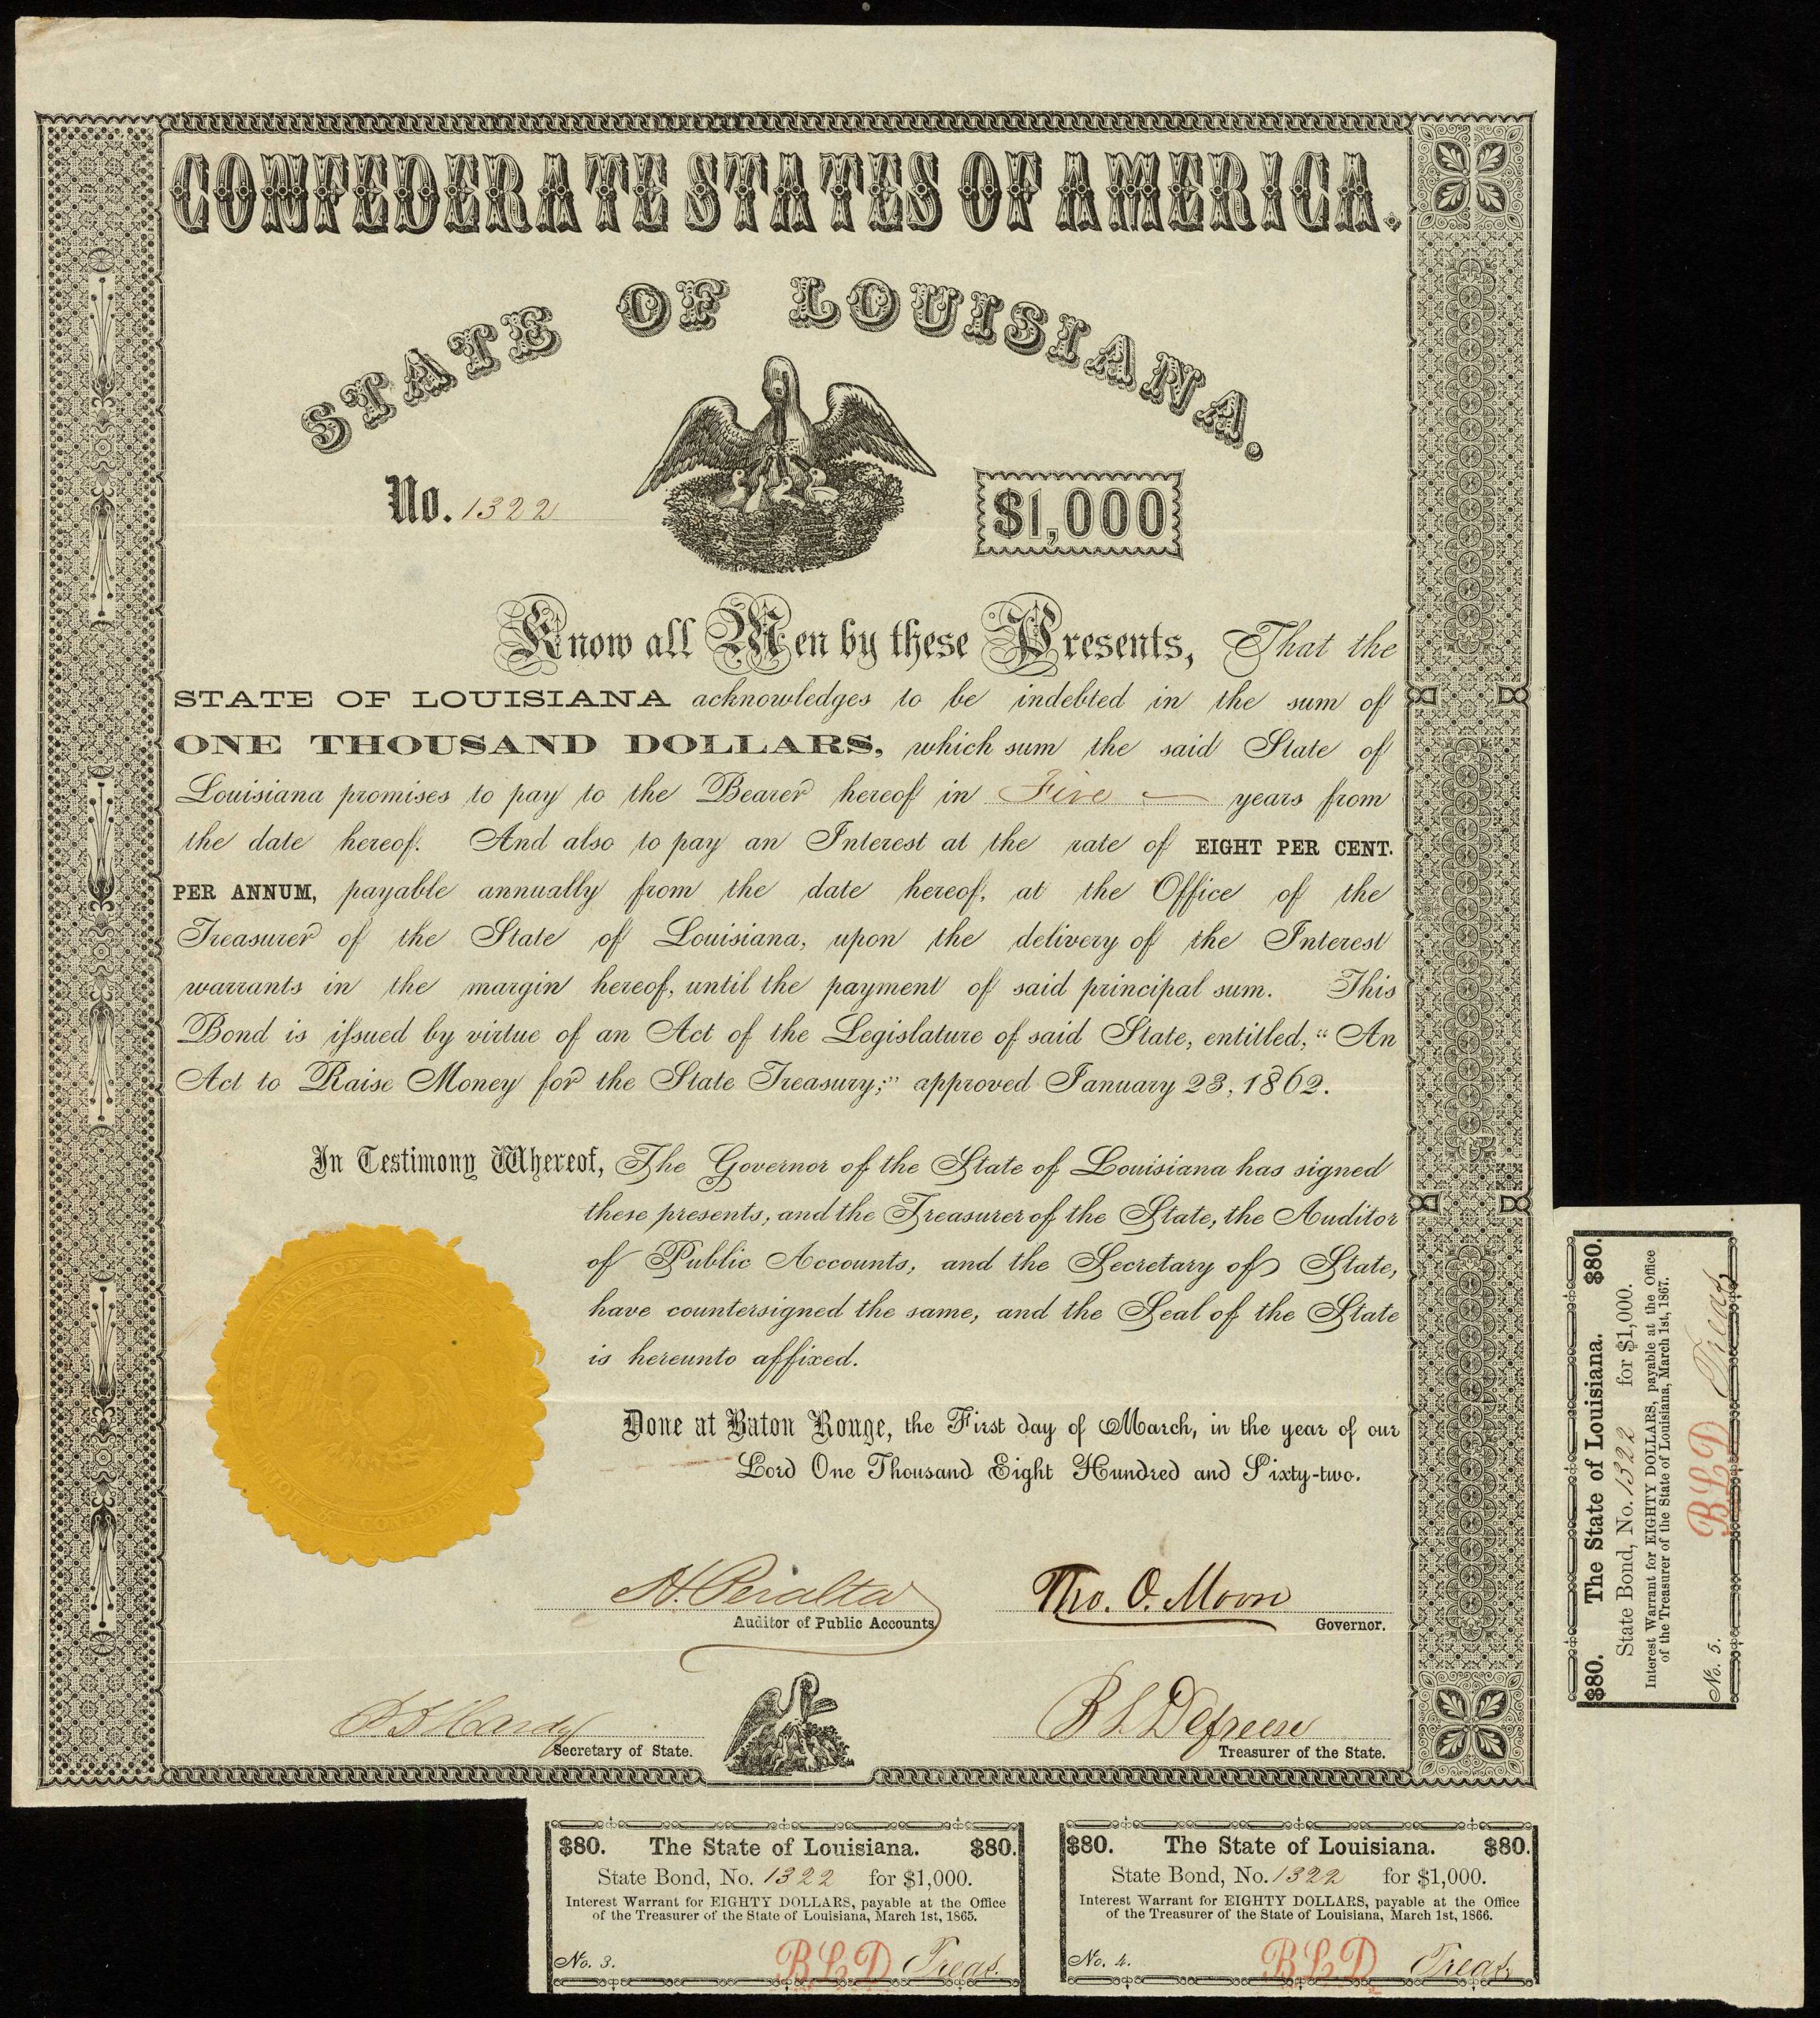 CONFEDERATE STATES OF AMERICA.
STATE OF LOUISIANA.
No. 1322
$1,000
Know all Men by these Presents, That the
STATE OF LOUISIANA acknowledges to be indebted in the sum of
ONE THOUSAND DOLLARS, which sum the said State of
Louisiana promises to pay to the Bearer hereof in Five years from
the date hereof. And also to pay an Interest at the rate of EIGHT PER CENT.
PER ANNUM, payable annually from the date hereof, at the Office of the
Treasurer of the State of Louisiana, upon the delivery of the Interest
warrants in the margin hereof, until the payment of said principal sum. This
Bond is issued by virtue of an Act of the Legislature of said State, entitled, "An
Act to Raise Money for the State Treasury;" approved January 23, 1862.
In Testimony Whereof, The Governor of the State of Louisiana has signed
these presents, and the Treasurer of the State, the Auditor
of Public Accounts, and the Secretary of State,
have countersigned the same, and the Seal of the State
is hereunto affixed.
Done at Baton Rouge, the First day of March, in the year of our
Lord One Thousand Eight Hundred and Sixty-two.
H. Peralta
Auditor of Public Accounts
Tho. O. Moore
Governor.
Hardy
Secretary of State.
B L Defreese
Treasurer of the State.
$80. The State of Louisiana. $80.
State Bond, No. 1322 for $1,000.
Interest Warrant for EIGHTY DOLLARS, payable at the Office
of the Treasurer of the State of Louisiana, March 1st, 1865.
No. 3. BLD Treas.
$80. The State of Louisiana. $80.
State Bond, No. 1322 for $1,000.
Interest Warrant for EIGHTY DOLLARS, payable at the Office
of the Treasurer of the State of Louisiana, March 1st, 1866.
No. 4. BLD Treas.
$80. The State of Louisiana. $80.
State Bond, No. 1322 for $1,000.
Interest Warrant for EIGHTY DOLLARS, payable at the Office
of the Treasurer of the State of Louisiana, March 1st, 1867.
No. 5. BLD Treas.